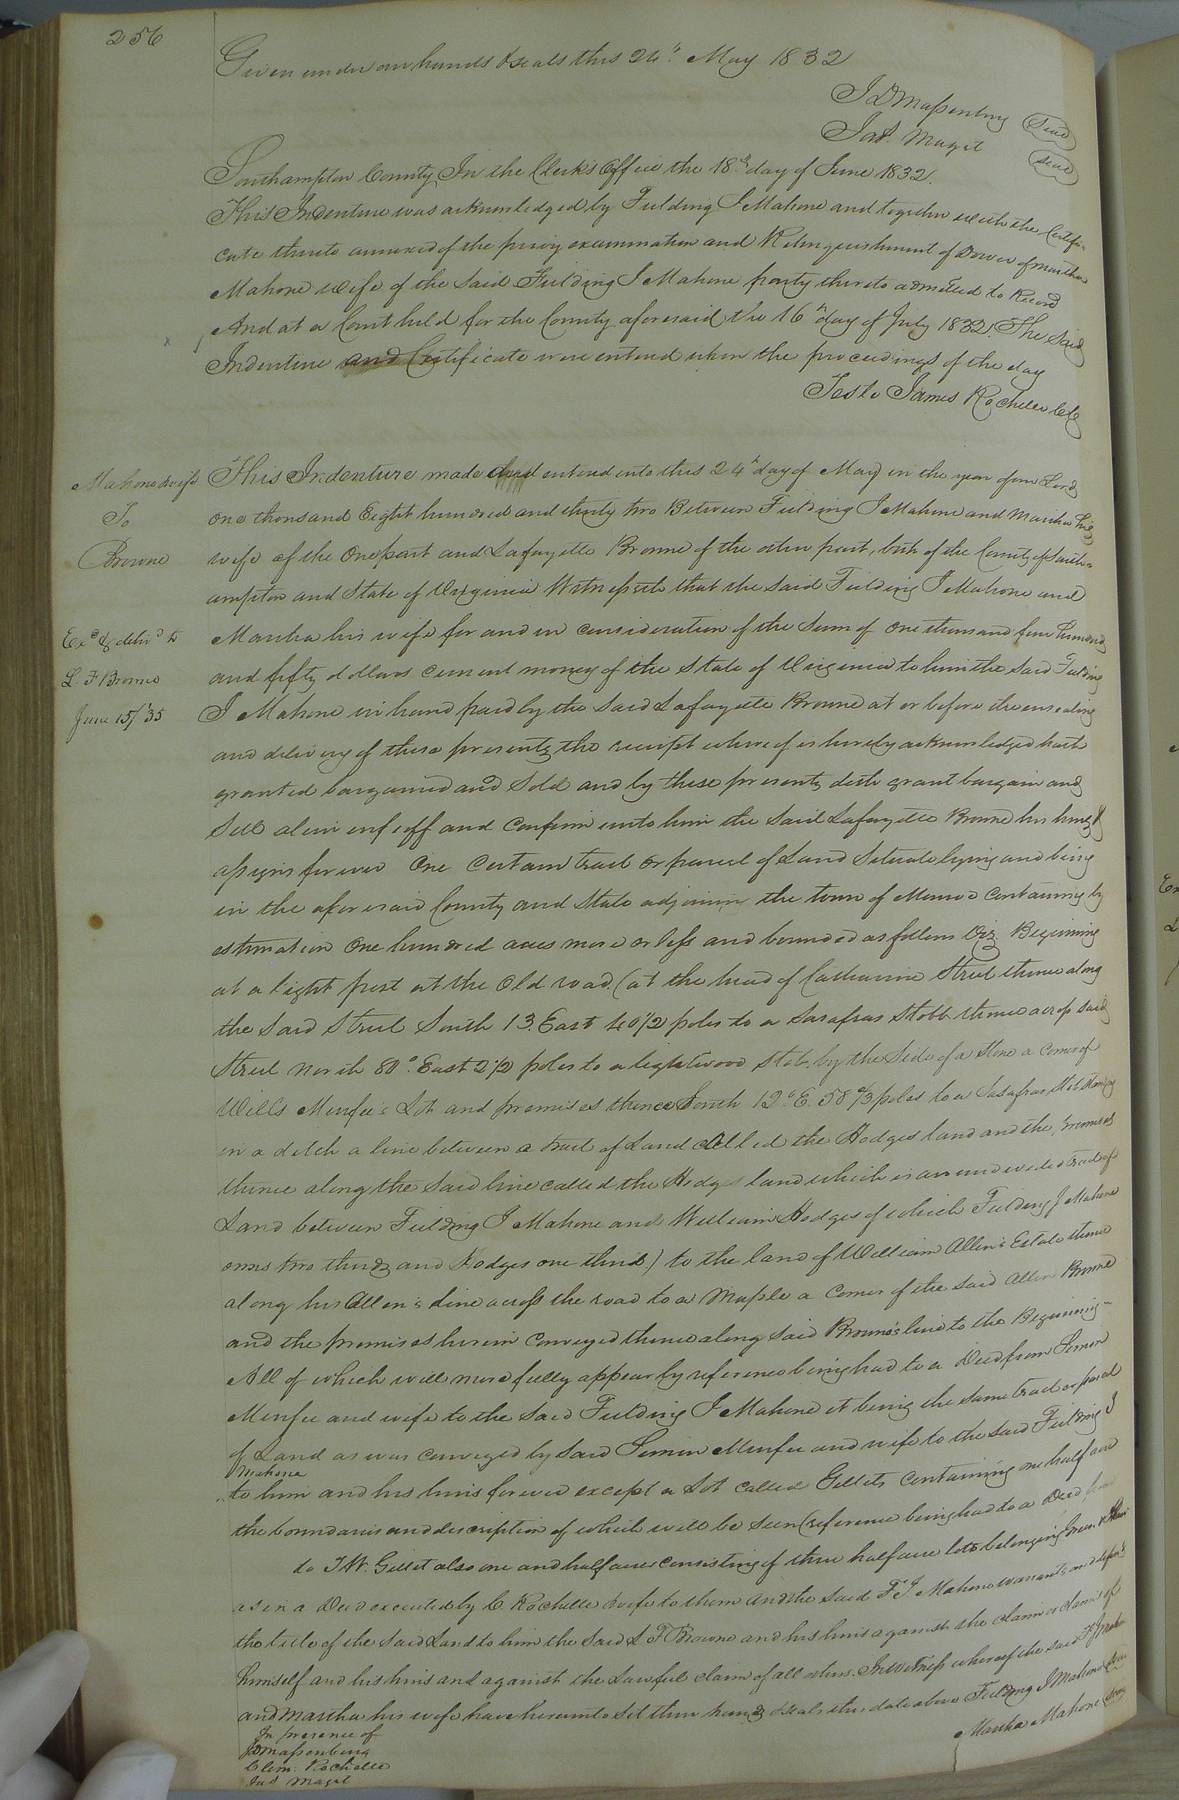 256
Given under our hands & seals this 24th May 1832
J D Massenburg Seal
Jas. Magit Seal
Southampton County In the Clerk's Office the 18th day of June 1832.
This Indenture was acknowledged by Fielding J Mahone and together with the Certifi-
cate thereto annexed of the privy examination and Relinquishment of Dower of Martha
Mahone wife of the said Fielding J Mahone party thereto admitted to Record
And at a Court held for the County aforesaid the 16th day of July 1832. The said
Indenture and Certificate were entered upon the proceedings of the day
Teste James Rochelle CC
Mahone & wife
To
Browne
Exd & delivd to
L. F Browne
June 15/35
This Indenture made and entered into this 24th day of May in the year of our Lord
one thousand Eight hundred and thirty two Between Fielding J Mahone and Martha his
wife of the one part and Lafayette Browne of the other part, both of the County of South-
ampton and State of Virginia Witnesseth that the said Fielding J Mahone and
Martha his wife for and in consideration of the Sum of one thousand four hundred
and fifty dollars current money of the State of Virginia to him the said Fielding
J Mahone in hand paid by the said Lafayette Browne at or before the ensealing
and delivery of these presents, the receipt whereof is hereby acknowledged hath
granted bargained and Sold and by these presents doth grant bargain and
Sell alien enfeoff and Confirm unto him the said Lafayette Browne his heirs &
assigns forever One Certain tract or parcel of Land Situate lying and being
in the aforesaid County and State adjoining the town of Monroe containing by
estimation One hundred acres more or less and bounded as follows Viz. Beginning
at a light post at the old road (at the head of Catharine Street thence along
the said Street South 13 East 40 1/2 poles to a Sasafras Stobb thence across said
Street North 80° East 2 1/2 poles to a lightwood Stob. by the Side of a Stone a corner of
Will's Menfee's Lot and premises thence South 12° E. 58 2/3 poles to a Sasafras Stob standing
in a ditch a line between a tract of Land called the Hodges land and the premises
thence along the said line called the Hodges land which is an undivided tract of
Land between Fielding J Mahone and William Hodges of which Fielding J Mahone
owns two thirds and Hodges one third) to the land of William Allen's Estate thence
along his Allen's line across the road to a Maple a Corner of the said Allen Browne
and the premises herein Conveyed thence along said Browne's line to the Beginning-
All of which will more fully appear by reference being had to a Deed from Simon
Menfee and wife to the said Fielding J Mahone it being the same tract or parcel
of Land as was conveyed by said Simon Menfee and wife to the said Fielding J
Mahone
to him and his heirs forever except a Lot called Gillets Containing one half acre
the boundaries and description of which will be Seen (reference being had to a Deed from
to J W. Gillet also one and half acres consisting of three half acre lots belonging
as in a Deed executed by C Rochelle & wife to them And the said F. J. Mahone warrants and defends
the title of the said Land to him the said L F Browne and his heirs against the claim or claims of
himself and his heirs and against the Lawful claim of all others. In witness whereof the said F J Mahone
and Martha his wife have hereunto set their hands & seals the date above Fielding J Mahone Seal
Martha Mahone Seal
In presence of
J D Massenburg
Clem. Rochelle
Jas Magit